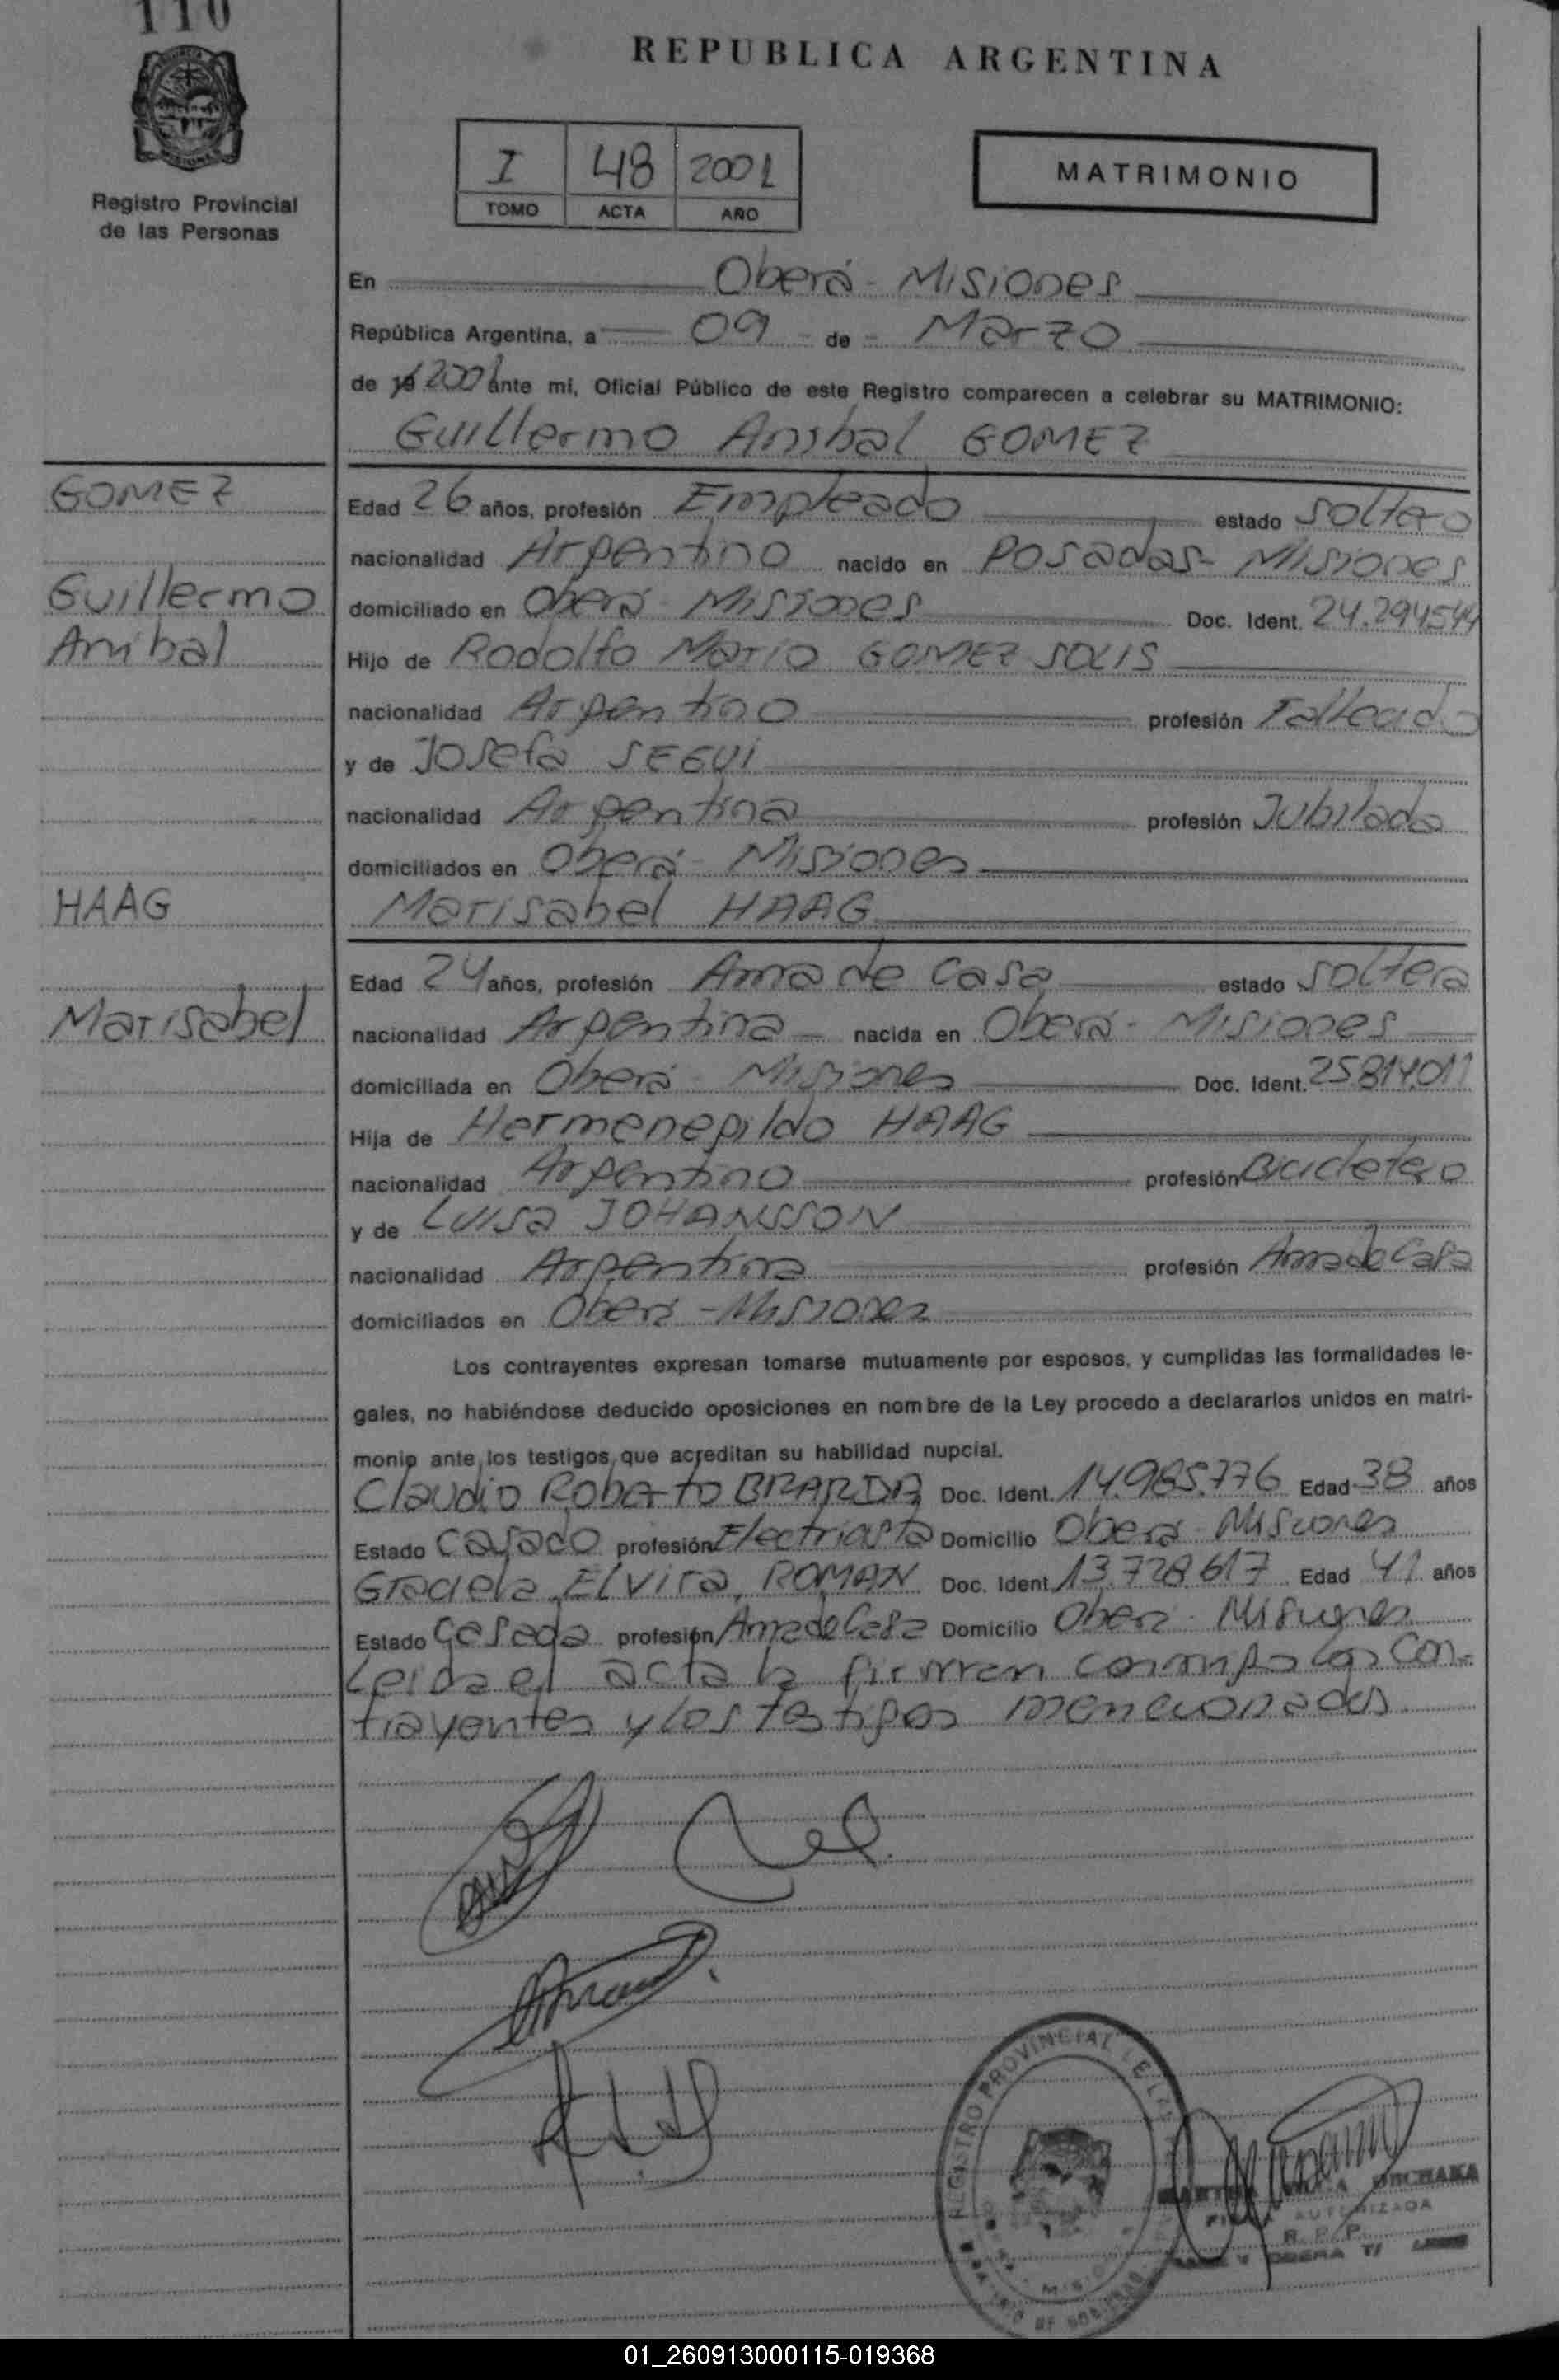 110
REPUBLICA ARGENTINA
Registro Provincial
de las Personas
I 48 2001
TOMO ACTA AÑO
MATRIMONIO
En Oberá - Misiones
República Argentina, a 09 de Marzo
de 19 2001 ante mi, Oficial Público de este Registro comparecen a celebrar su MATRIMONIO:
Guillermo Anibal GOMEZ
GOMEZ
Guillermo
Anibal
Edad 26 años, profesión Empleado estado soltero
nacionalidad Argentino nacido en Posadas - Misiones
domiciliado en Oberá - Misiones Doc. Ident. 24.294544
Hijo de Rodolfo Mario GOMEZ SOLIS
nacionalidad Argentino profesión Fallecido
y de Josefa SEGUI
nacionalidad Argentina profesión Jubilada
domiciliados en Oberá - Misiones
HAAG
Marisabel
Marisabel HAAG
Edad 24 años, profesión Ama de Casa estado soltera
nacionalidad Argentina nacida en Oberá - Misiones
domiciliada en Oberá - Misiones Doc. Ident. 25814011
Hija de Hermenegildo HAAG
nacionalidad Argentino profesión Bicicletero
y de Luisa JOHANSSON
nacionalidad Argentina profesión Ama de Casa
domiciliados en Oberá - Misiones
Los contrayentes expresan tomarse mutuamente por esposos, y cumplidas las formalidades le-
gales, no habiéndose deducido oposiciones en nombre de la Ley procedo a declararlos unidos en matri-
monio ante los testigos que acreditan su habilidad nupcial.
Claudio Roberto BRARDA Doc. Ident. 14.985.776 Edad 38 años
Estado Casado profesión Electricista Domicilio Oberá - Misiones
Graciela Elvira ROMAN Doc. Ident. 13.728.617 Edad 41 años
Estado Casada profesión Ama de Casa Domicilio Oberá - Misiones
Leida el acta la firman conmigo los Con-
trayentes y los testigos mencionados
REGISTRO PROVINCIAL DE LAS
AUTORIZADA
R. P. P.
OBERA
01_260913000115-019368